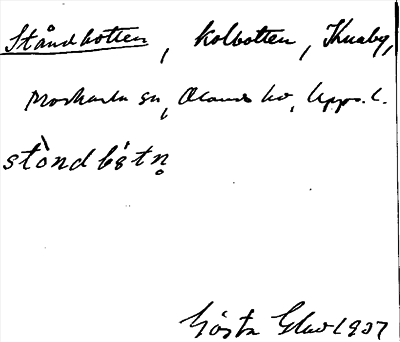 Ståndbotten, kolbotten, Knaby,
Morkarla sn, Olands hd, Upps. l.
stò̀ndbåtn̥
Gösta Elmv 1937